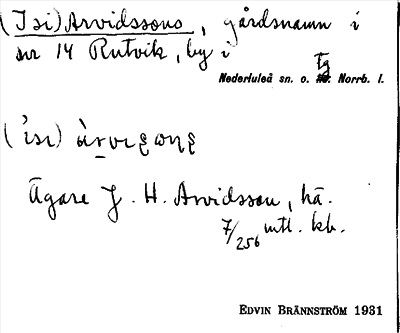 (Isi) Arvidssons, gårdsnamn i
nr 14 Rutvik, by i
tg
Nederluleå sn. o. Norrb. l.
Ägare J. H. Arvidsson, hä.
7/256 mtl. kb.
EDVIN BRÄNNSTRÖM 1931